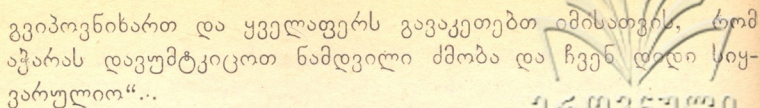 გვიპოვნიხართ და ყველაფერს გავაკეთებთ იმისათვის, რომ
აჭარას დავუმტკიცოთ ნამდვილი ძმობა და ჩვენ დიდი სიყ-
ვარულიო“...